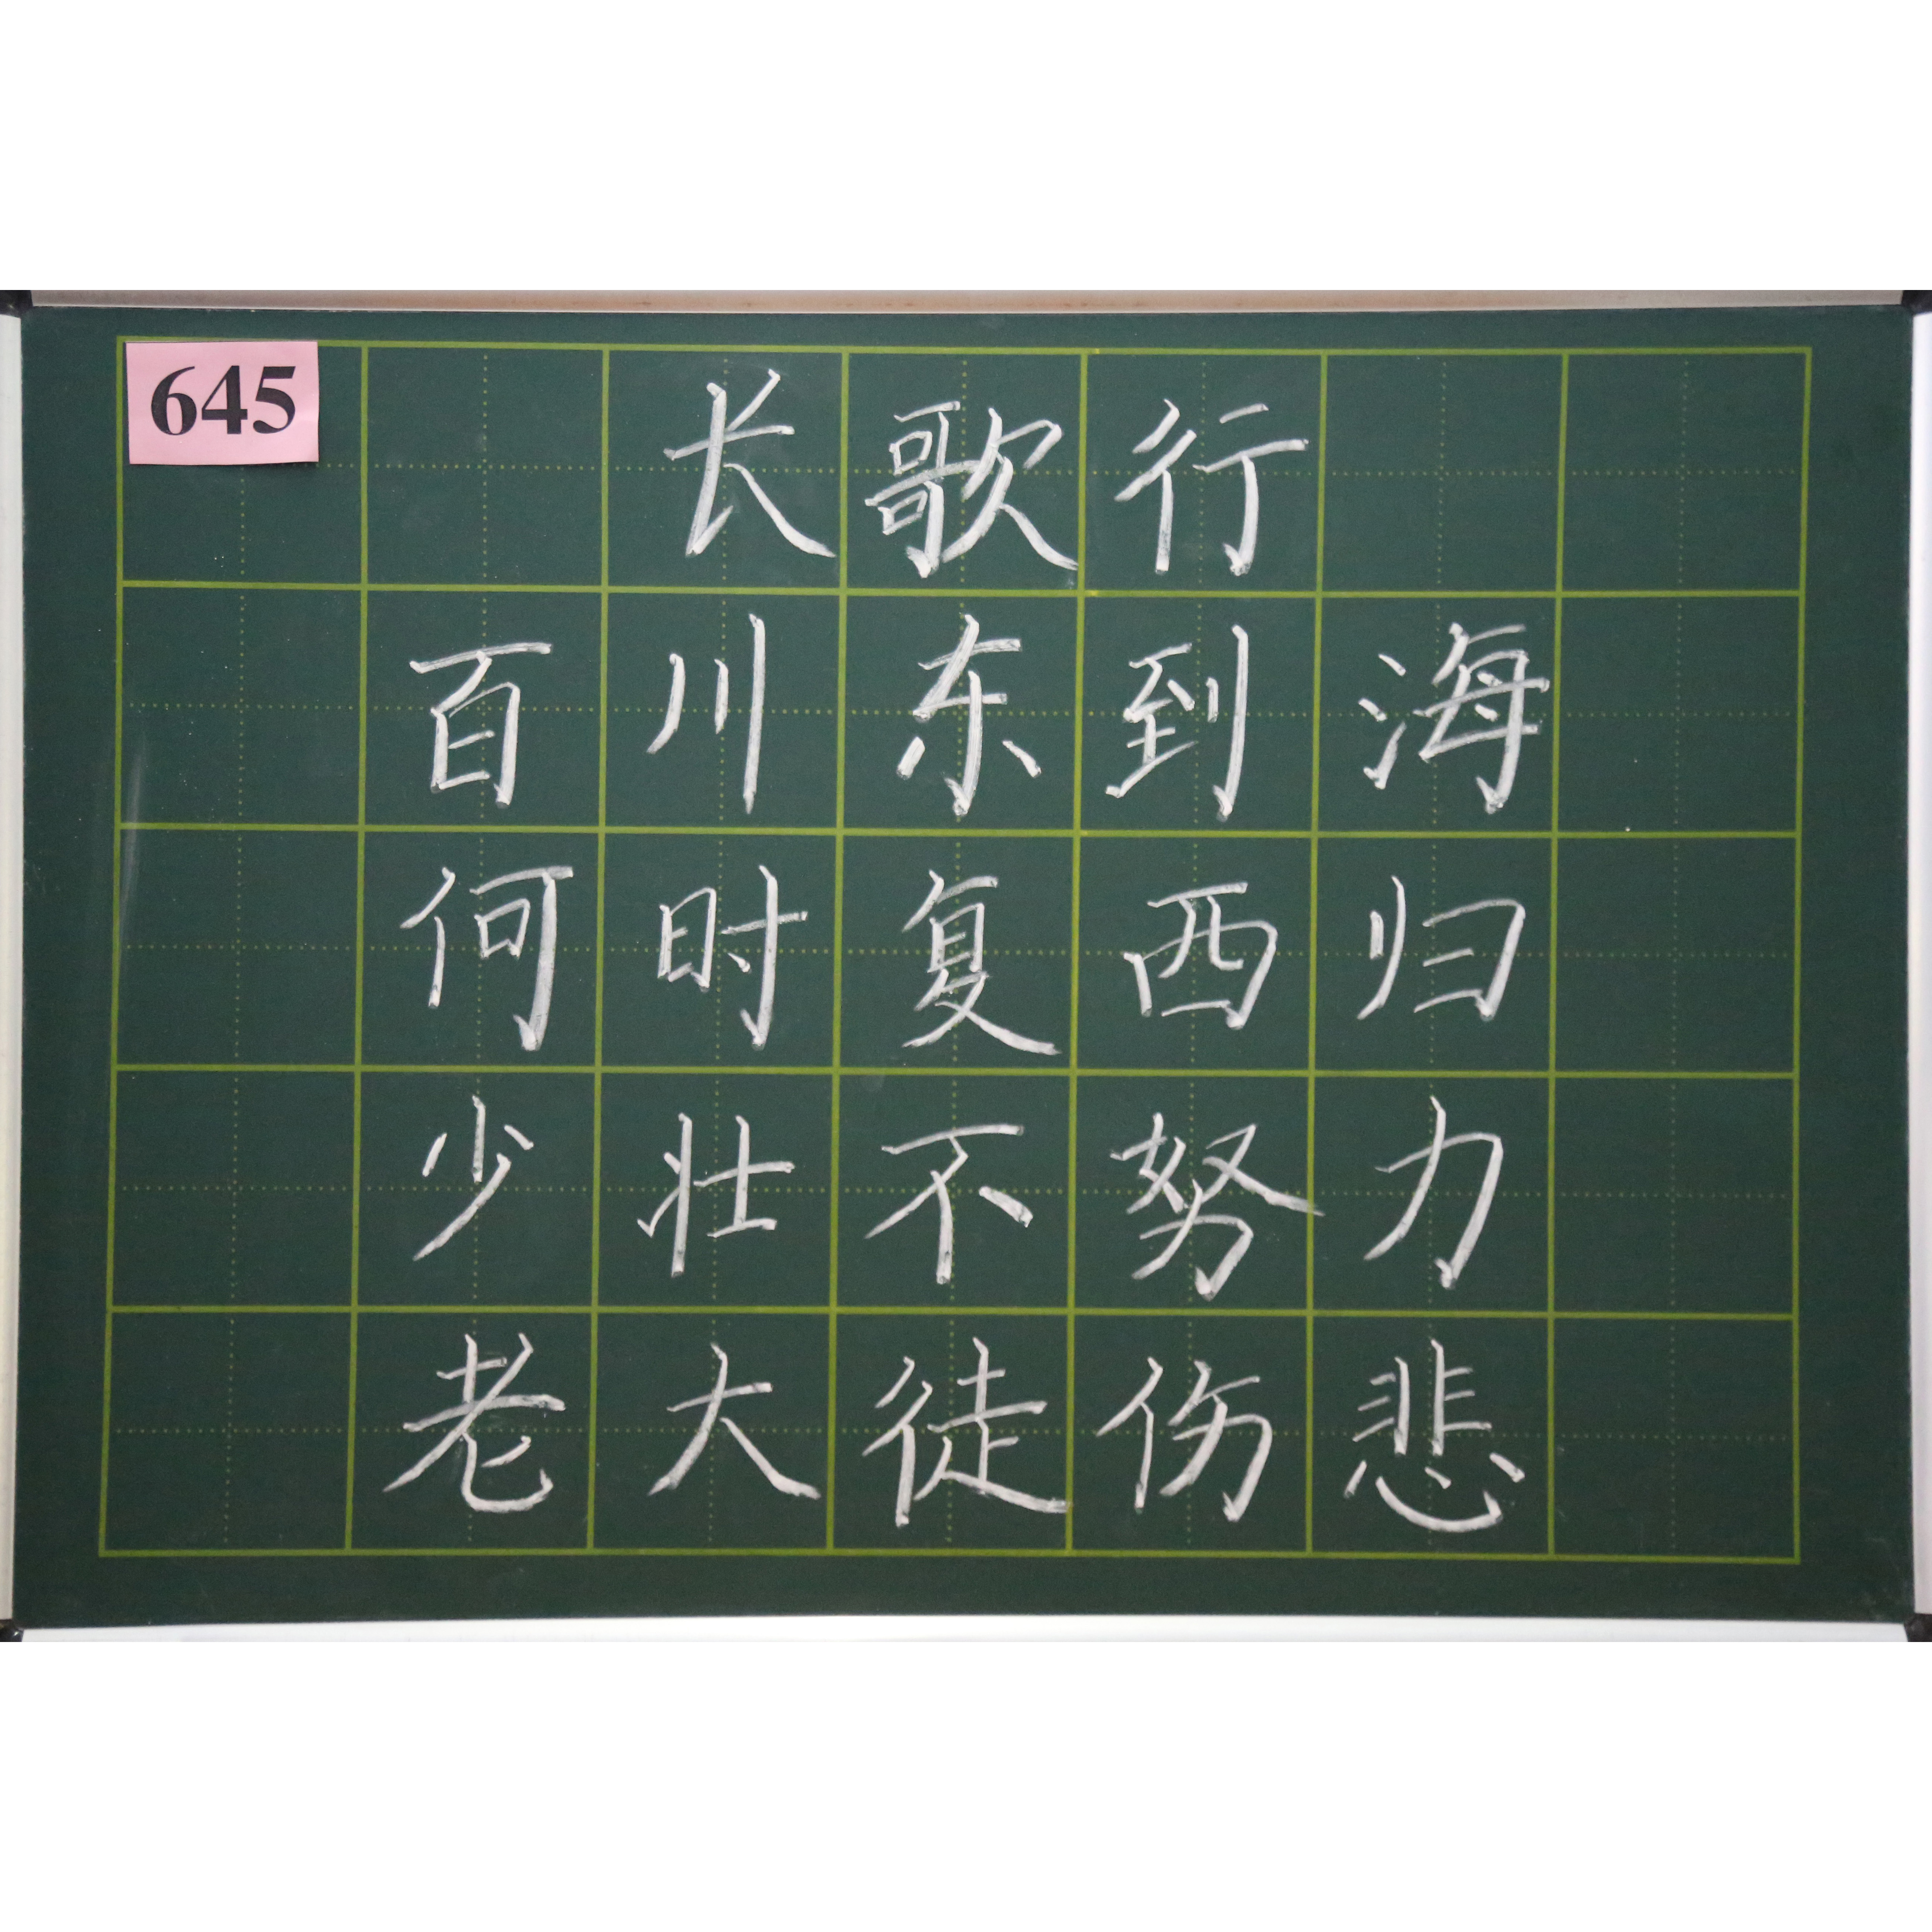 645
长歌行
百川东到海
何时复西归
少壮不努力
老大徒伤悲